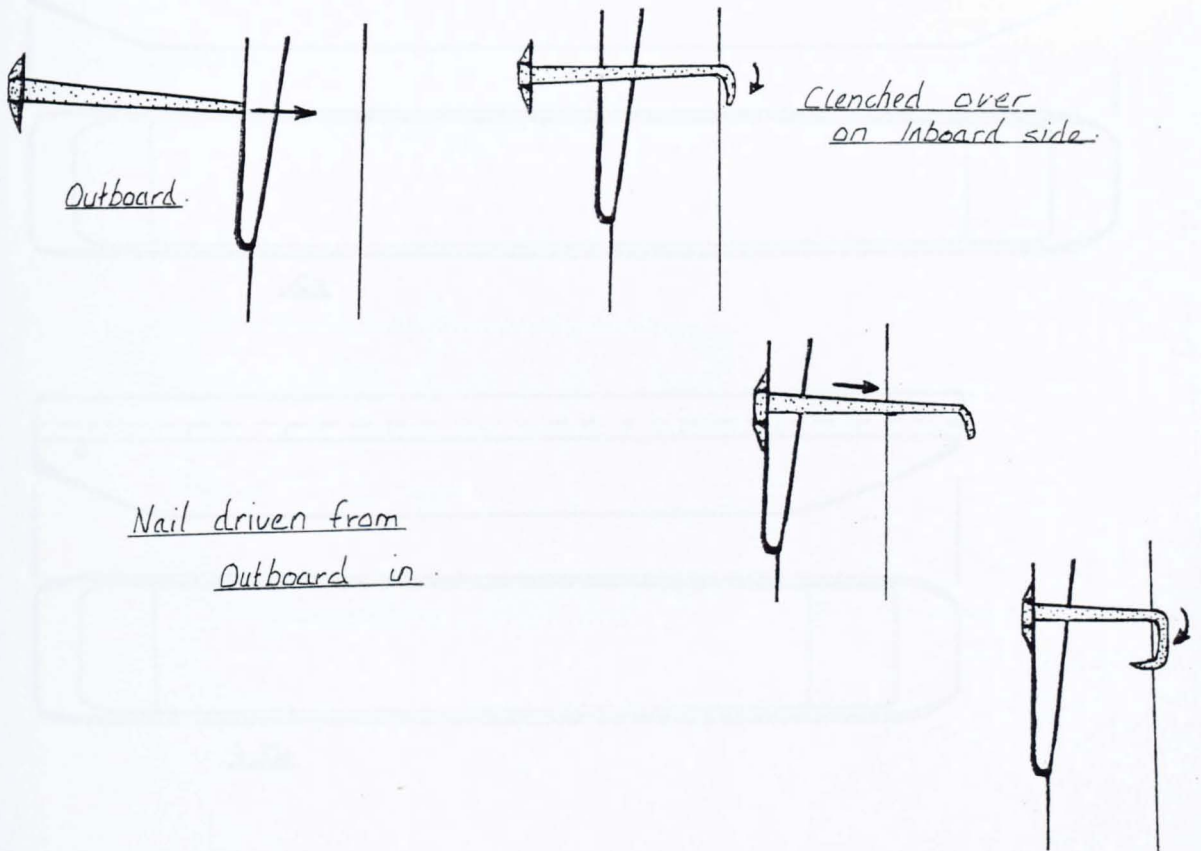 Outboard.
Clenched over
on Inboard side.
Nail driven from
Outboard in.